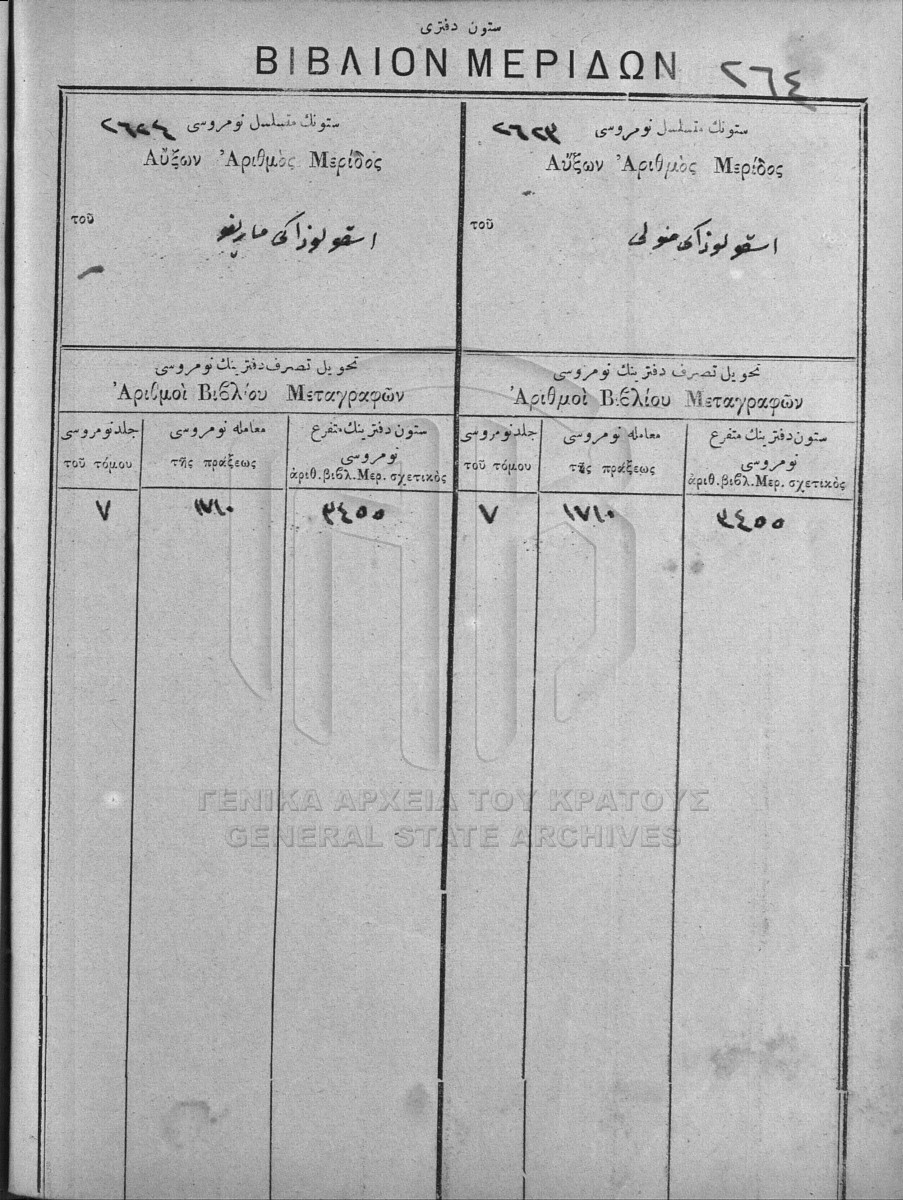 ستون دفتری
ΒΙΒΛΙΟΝ ΜΕΡΙΔΩΝ
٢٦٤
ستونك متسلسل نومروسی ٢٦٢٣
Αὔξων Ἀριθμὸς Μερίδος
τοῦ
اسقولوذاكی منولی
ستونك متسلسل نومروسی ٢٦٢٤
Αὔξων Ἀριθμὸς Μερίδος
τοῦ
اسقولوذاكی ماريغو
تحویل تصرف دفترینك نومروسی
Ἀριθμοὶ Βιβλίου Μεταγραφῶν
ستون دفترینك متفرع نومروسی
ἀριθ. βιβλ. Μερ. σχετικὸς
معامله نومروسی
τῆς πράξεως
جلد نومروسی
τοῦ τόμου
٣٤٥٥
١٧١٠
٧
تحویل تصرف دفترینك نومروسی
Ἀριθμοὶ Βιβλίου Μεταγραφῶν
ستون دفترینك متفرع نومروسی
ἀριθ. βιβλ. Μερ. σχετικὸς
معامله نومروسی
τῆς πράξεως
جلد نومروسی
τοῦ τόμου
٣٤٥٥
١٧١٠
٧
ΓΕΝΙΚΑ ΑΡΧΕΙΑ ΤΟΥ ΚΡΑΤΟΥΣ
GENERAL STATE ARCHIVES